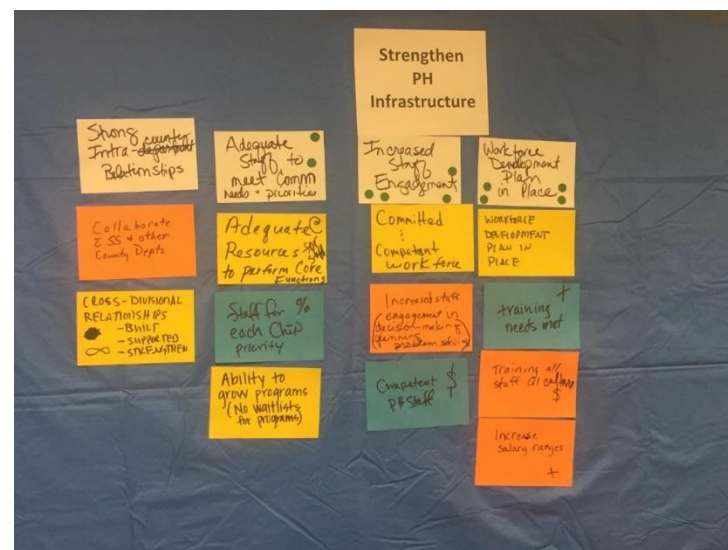 Strengthen
PH
Infrastructure
Strong
Intra-department county
Relationships
Collaborate
c̄ SS & other
County Depts
CROSS-DIVISIONAL
RELATIONSHIPS
-BUILT
-SUPPORTED
∞ -STRENGTHEN
Adequate
Staff to
meet Comm
needs + priorities
Adequate @
Resources
to perform Core
Functions
Staff for %
each CHIP
priority
Ability to
grow programs
(No waitlists
for programs)
Increased
Staff
Engagement
Committed
Competent
workforce
Increased staff
engagement in
(decision-making
planning
problem solving)
Competent $
PH Staff
Workforce
Development
Plan
in Place
WORKFORCE
DEVELOPMENT
PLAN IN
PLACE
+
training
needs met
Training all
staff on culture
$
Increase
salary ranges
+